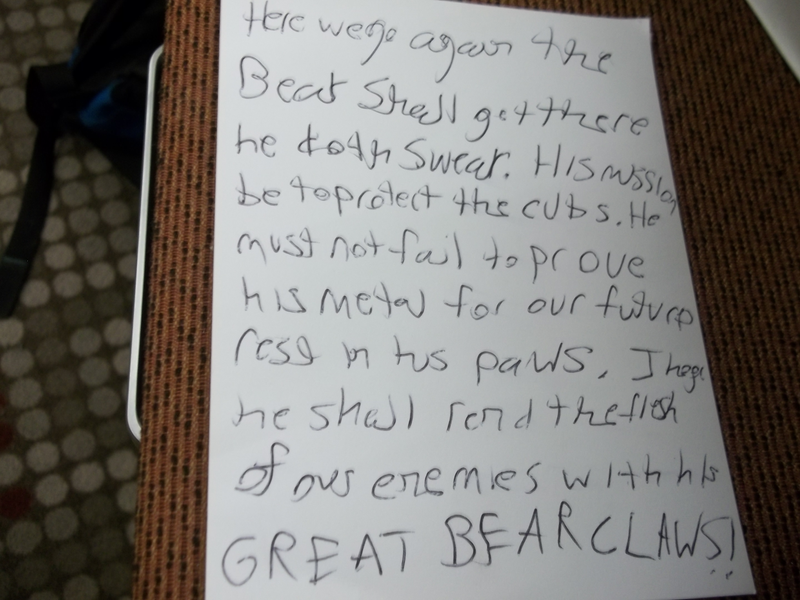 Here we go again the
Bear Shall get there
he doth Swear. His mission
be to protect the cubs. He
must not fail to prove
his metal for our future
rest in his paws. I hope
he shall rend the flesh
of our enemies with his
GREAT BEAR CLAWS!!